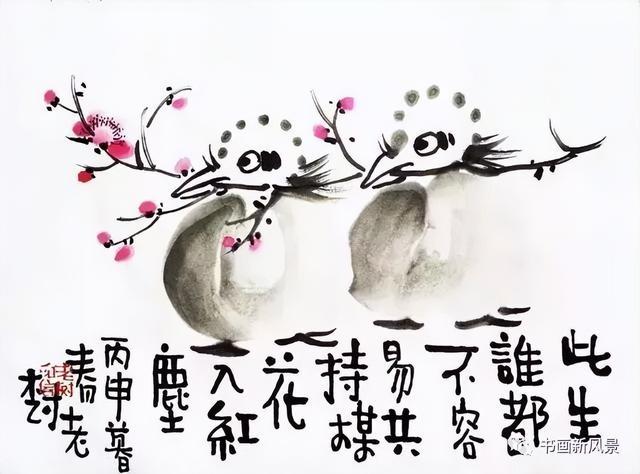 此生
誰都
不容
易共
持楳
花
入紅
塵
丙申暮
春老
树
书画新风景